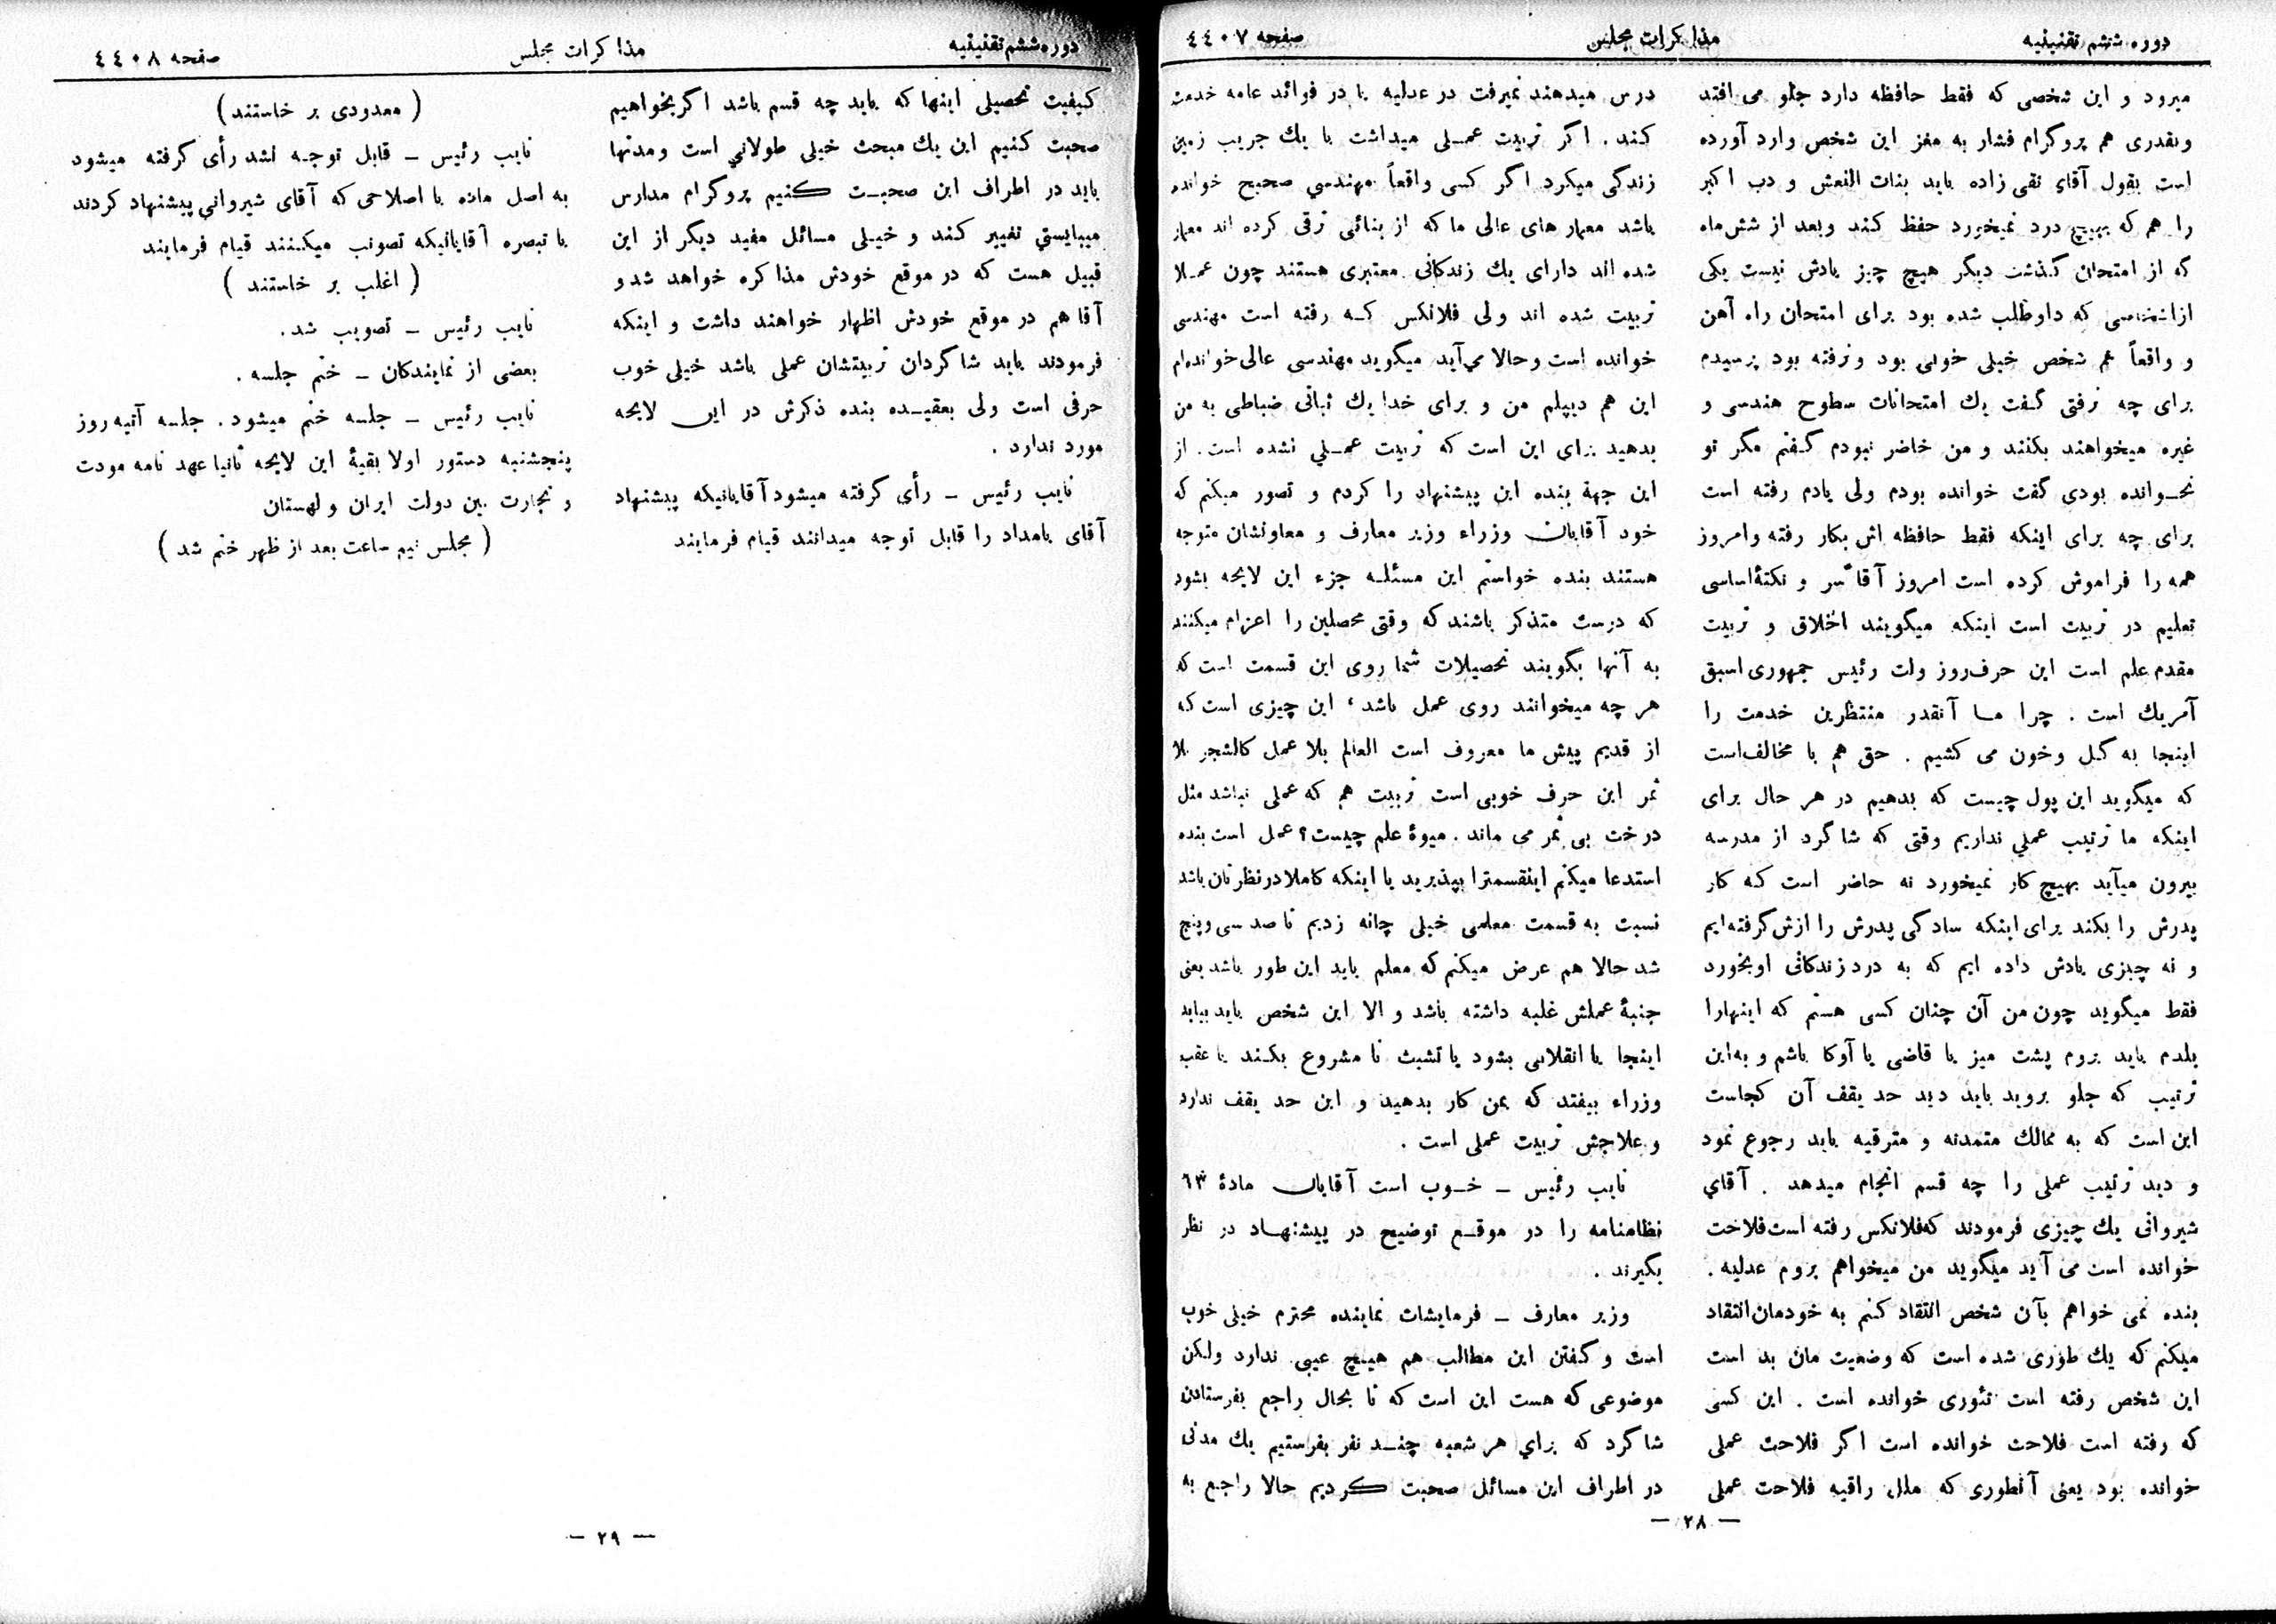 دوره ششم تقنینیه
مذاکرات مجلس
صفحه ٤٤٠٧
میرود و این شخصی که فقط حافظه دارد جلو می افتد
وبقدری هم پروگرام فشار به مغز این شخص وارد آورده
است بقول آقای تقی زاده باید بنات النعش و دب اکبر
را هم که بهیچ درد نمیخورد حفظ کند وبعد از شش ماه
که از امتحان گذشت دیگر هیچ چیز یادش نیست یکی
ازاشخاصی که داوطلب شده بود برای امتحان راه آهن
و واقعاً هم شخص خیلی خوبی بود ونرفته بود پرسیدم
برای چه نرفتی گفت یك امتحانات سطوح هندسی و
غیره میخواهند بکنند و من حاضر نبودم گفتم مگر تو
نخوانده بودی گفت خوانده بودم ولی یادم رفته است
برای چه برای اینکه فقط حافظه اش بکار رفته وامروز
همه را فراموش کرده است امروز آقا سر و نکتۀ اساسی
تعلیم در تربیت است اینکه میگویند اخلاق و تربیت
مقدم علم است این حرف روز ولت رئیس جمهوری اسبق
آمریك است . چرا ما آنقدر منتظرین خدمت را
اینجا به گل وخون می کشیم . حق هم با مخالف است
که میگوید این پول چیست که بدهیم در هر حال برای
اینکه ما ترتیب عملي نداریم وقتی که شاگرد از مدرسه
بیرون میآید بهیچ کار نمیخورد نه حاضر است که کار
پدرش را بکند برای اینکه سادگی پدرش را ازش گرفته ایم
و نه چیزی یادش داده ایم که به درد زندگانی او بخورد
فقط میگوید چون من آن چنان کسی هستم که اینهارا
بلدم باید بروم پشت میز یا قاضی یا آوکا باشم و به این
ترتیب که جلو بروید باید دید حد یقف آن کجاست
این است که به ممالك متمدنه و مترقیه باید رجوع نمود
و دید ترتیب عملی را چه قسم انجام میدهد . آقاي
شیروانی یك چیزی فرمودند که فلانکس رفته است فلاحت
خوانده است می آید میگوید من میخواهم بروم عدلیه .
بنده نمی خواهم بآن شخص انتقاد کنم به خودمان انتقاد
میکنم که یك طوری شده است که وضعیت مان بد است
این شخص رفته است تئوری خوانده است . این کسی
که رفته است فلاحت خوانده است اگر فلاحت عملی
خوانده بود یعنی آنطوری که ملل راقیه فلاحت عملی
درس میدهند نمیرفت در عدلیه یا در فوائد عامه خدمت
کند . اگر تربیت عملی میداشت با یك جریب زمین
زندگی میکرد اگر کسی واقعاً مهندسي صحیح خوانده
باشد معمار های عالی ما که از بنائی ترقی کرده اند معمار
شده اند دارای یك زندگانی معتبری هستند چون عملا
تربیت شده اند ولی فلانکس که رفته است مهندسی
خوانده است وحالا می آید میگوید مهندسی عالی خوانده ام
این هم دیپلم من و برای خدا یك ثباتی ضباطی به من
بدهید برای این است که تربیت عملي نشده است . از
این جهة بنده این پیشنهاد را کردم و تصور میکنم که
خود آقایان وزراء وزیر معارف و معاونشان متوجه
هستند بنده خواستم این مسئله جزء این لایحه بشود
که درست متذکر باشند که وقتی محصلین را اعزام میکنند
به آنها بگویند تحصیلات شما روی این قسمت است که
هر چه میخوانند روی عمل باشد ، این چیزی است که
از قدیم پیش ما معروف است العالم بلا عمل کالشجر بلا
ثمر این حرف خوبی است تربیت هم که عملی نباشد مثل
درخت بی ثمر می ماند . میوۀ علم چیست؟ عمل است بنده
استدعا میکنم اینقسمترا بپذیرید یا اینکه کاملا درنظرتان باشد
نسبت به قسمت معلمی خیلی چانه زدیم تا صد سی وپنج
شد حالا هم عرض میکنم که معلم باید این طور باشد یعنی
جنبۀ عملش غلبه داشته باشد و الا این شخص باید بیاید
اینجا یا انقلابی بشود یا تشبث نا مشروع بکند یا عقب
وزراء بیفتد که بمن کار بدهید و این حد یقف ندارد
و علاجش تربیت عملی است .
نایب رئیس ــ خوب است آقایان مادۀ ٦٣
نظامنامه را در موقع توضیح در پیشنهاد در نظر
بگیرند .
وزیر معارف ــ فرمایشات نماینده محترم خیلی خوب
است و گفتن این مطالب هم هیچ عیبی ندارد ولکن
موضوعی که هست این است که تا بحال راجع بفرستادن
شاگرد که براي هر شعبه چند نفر بفرستیم یك مدتی
در اطراف این مسائل صحبت کردیم حالا راجع به
ـ ٢٨ ـ
دوره ششم تقنینیه
مذاکرات مجلس
صفحه ٤٤٠٨
کیفیت تحصیلی اینها که باید چه قسم باشد اگر بخواهیم
صحبت کنیم این یك مبحث خیلی طولاني است ومدتها
باید در اطراف این صحبت کنیم پروگرام مدارس
میبایستي تغییر کند و خیلی مسائل مفید دیگر از این
قبیل هست که در موقع خودش مذاکره خواهد شد و
آقا هم در موقع خودش اظهار خواهند داشت و اینکه
فرمودند باید شاگردان تربیتشان عملی باشد خیلی خوب
حرفی است ولی بعقیده بنده ذکرش در این لایحه
مورد ندارد .
نایب رئیس ــ رأی گرفته میشود آقایانیکه پیشنهاد
آقای بامداد را قابل توجه میدانند قیام فرمایند
( معدودی بر خاستند )
نایب رئیس ــ قابل توجه نشد رأی گرفته میشود
به اصل ماده با اصلاحی که آقای شیرواني پیشنهاد کردند
با تبصره آقایانیکه تصویب میکنند قیام فرمایند
( اغلب بر خاستند )
نایب رئیس ــ تصویب شد .
بعضی از نمایندگان ــ ختم جلسه .
نایب رئیس ــ جلسه ختم میشود . جلسه آتیه روز
پنجشنبه دستور اولا بقیۀ این لایحه ثانیا عهد نامه مودت
و تجارت بین دولت ایران و لهستان
( مجلس نیم ساعت بعد از ظهر ختم شد )
ـ ٢٩ ـ